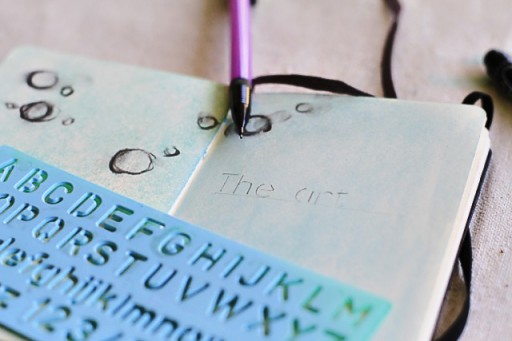 The art
ABCDEFGHIJKLM
OPQRSTUVWXYZ
defghijklmno
123